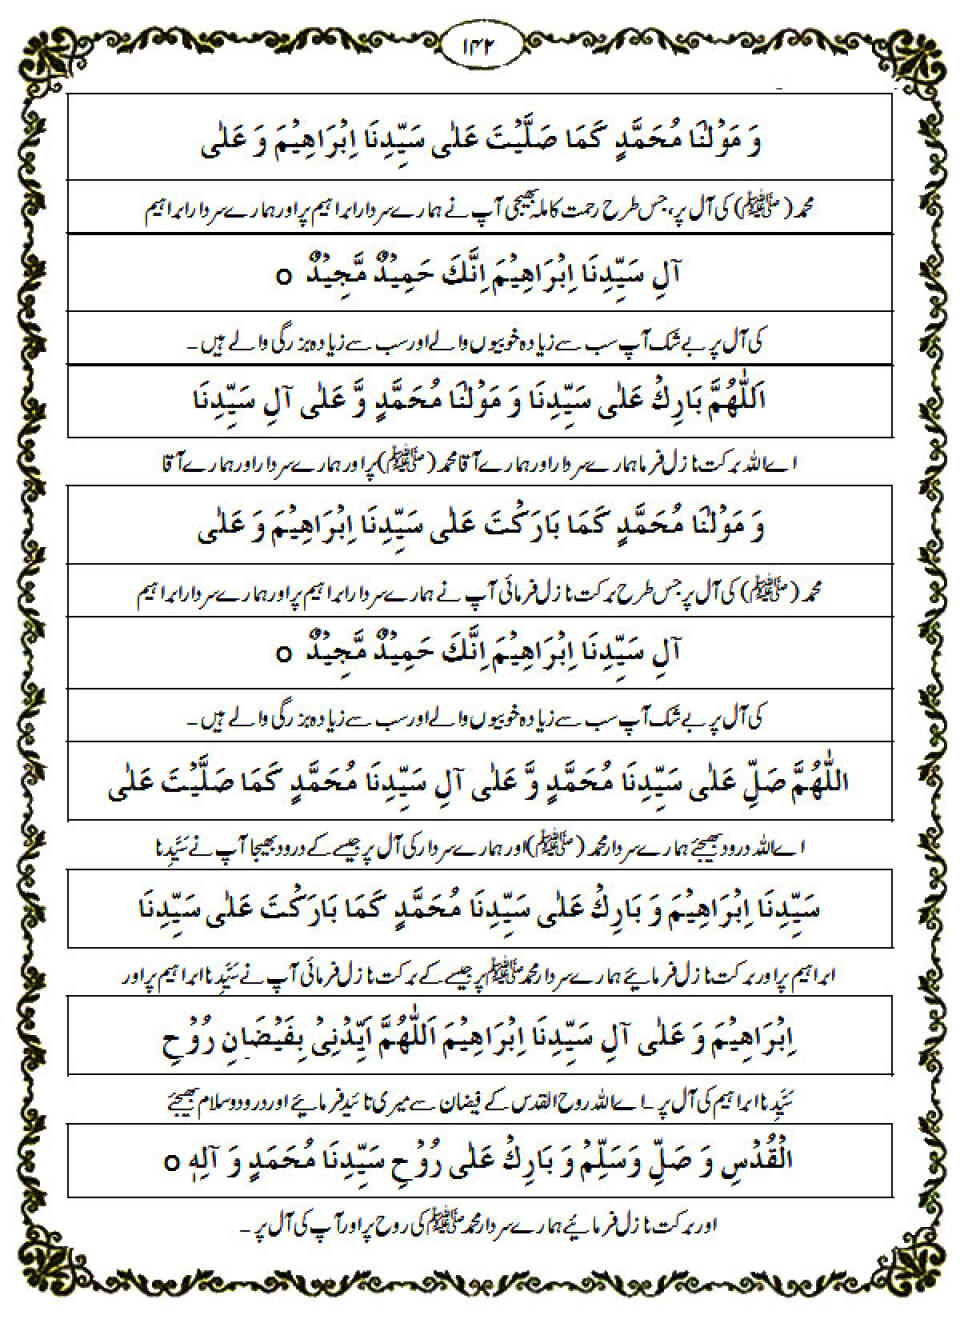 ۱۴۲
وَ مَوْلٰنَا مُحَمَّدٍ كَمَا صَلَّيْتَ عَلٰى سَيِّدِنَا اِبْرَاهِيْمَ وَ عَلٰى
محمد (ﷺ) کی آل پر، جس طرح رحمت کاملہ بھیجی آپ نے ہمارے سردار ابراہیم پر اور ہمارے سردار ابراہیم
آلِ سَيِّدِنَا اِبْرَاهِيْمَ اِنَّكَ حَمِيْدٌ مَّجِيْدٌ ○
کی آل پر بے شک آپ سب سے زیادہ خوبیوں والے اور سب سے زیادہ بزرگی والے ہیں۔
اَللّٰهُمَّ بَارِكْ عَلٰى سَيِّدِنَا وَ مَوْلٰنَا مُحَمَّدٍ وَّ عَلٰى آلِ سَيِّدِنَا
اے اللہ برکت نازل فرما ہمارے سردار اور ہمارے آقا محمد (ﷺ) پر اور ہمارے سردار اور ہمارے آقا
وَ مَوْلٰنَا مُحَمَّدٍ كَمَا بَارَكْتَ عَلٰى سَيِّدِنَا اِبْرَاهِيْمَ وَ عَلٰى
محمد (ﷺ) کی آل پر جس طرح برکت نازل فرمائی آپ نے ہمارے سردار ابراہیم پر اور ہمارے سردار ابراہیم
آلِ سَيِّدِنَا اِبْرَاهِيْمَ اِنَّكَ حَمِيْدٌ مَّجِيْدٌ ○
کی آل پر بے شک آپ سب سے زیادہ خوبیوں والے اور سب سے زیادہ بزرگی والے ہیں۔
اللّٰهُمَّ صَلِّ عَلٰى سَيِّدِنَا مُحَمَّدٍ وَّ عَلٰى آلِ سَيِّدِنَا مُحَمَّدٍ كَمَا صَلَّيْتَ عَلٰى
اے اللہ درود بھیجئے ہمارے سردار محمد (ﷺ) اور ہمارے سردار کی آل پر جیسے کے درود بھیجا آپ نے سَیِّدِنا
سَيِّدِنَا اِبْرَاهِيْمَ وَ بَارِكْ عَلٰى سَيِّدِنَا مُحَمَّدٍ كَمَا بَارَكْتَ عَلٰى سَيِّدِنَا
ابراہیم پر اور برکت نازل فرمایئے ہمارے سردار محمد ﷺ پر جیسے کے برکت نازل فرمائی آپ نے سَیِّدِنا ابراہیم پر اور
اِبْرَاهِيْمَ وَ عَلٰى آلِ سَيِّدِنَا اِبْرَاهِيْمَ اَللّٰهُمَّ اَيِّدْنِىْ بِفَيْضَانِ رُوْحِ
سَیِّدِنا ابراہیم کی آل پر ۔ اے اللہ روح القدس کے فیضان سے میری تائید فرمایئے اور درود و سلام بھیجئے
الْقُدْسِ وَ صَلِّ وَسَلِّمْ وَ بَارِكْ عَلٰى رُوْحِ سَيِّدِنَا مُحَمَدٍ وَ آلِهٖ ○
اور برکت نازل فرمایئے ہمارے سردار محمد ﷺ کی روح پر اور آپ کی آل پر ۔